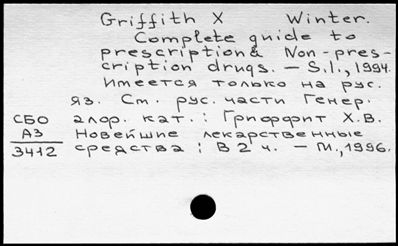 Griffith X Winter.
Complete guide to
prescription & Non-pres-
cription drugs. – S.l., 1994.
Имеется только на рус.
яз. См. рус. части Генер.
СБО алф. кат. : Гриффит Х.В.
А3 Новейшие лекарственные
3412 средства : В 2 ч. – М., 1996.